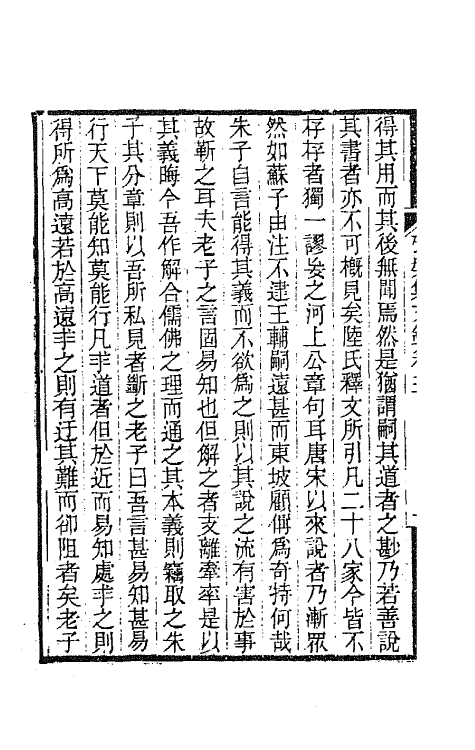 得其用而其後無聞焉然是猶謂嗣其道者之尠乃若善說
其書者亦不可槪見矣陸氏釋文所引凡二十八家今皆不
存存者獨一謬妄之河上公章句耳唐宋以來說者乃漸眾
然如蘇子由注不逮王輔嗣遠甚而東坡顧偁爲奇特何哉
朱子自言能得其義而不欲爲之則以其說之流有害於事
故靳之耳夫老子之言固易知也但解之者支離牽率是以
其義晦今吾作解合儒佛之理而通之其本義則竊取之朱
子其分章則以吾所私見者斷之老子曰吾言甚易知甚易
行天下莫能知莫能行凡求道者但於近而易知處求之則
得所爲高遠若於高遠求之則有迂其難而卻阻者矣老子